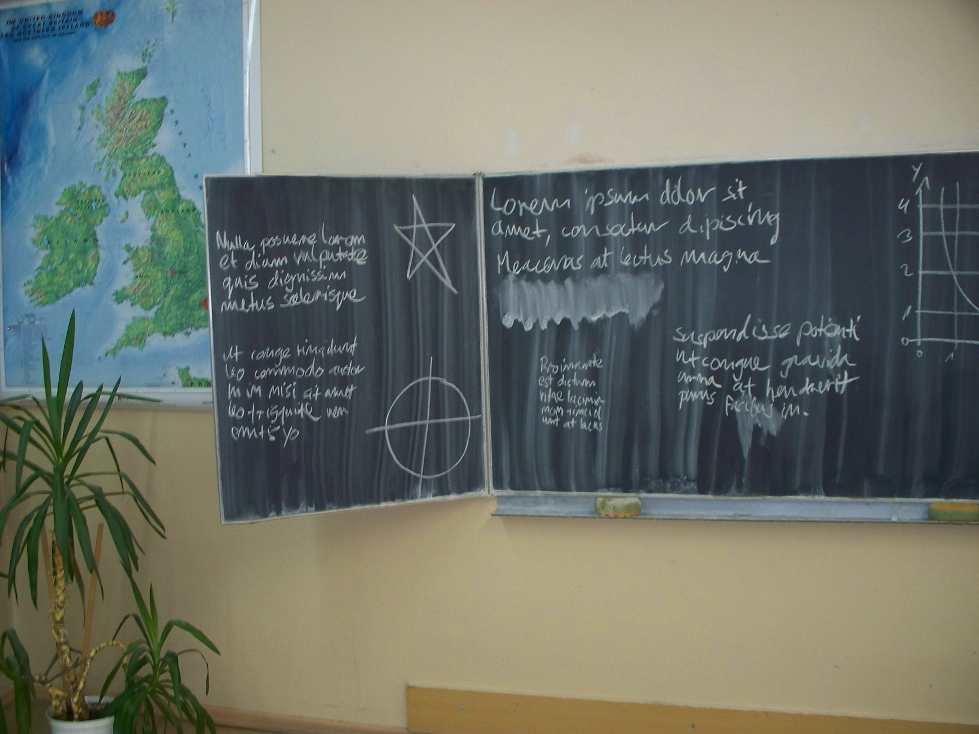 THE UNITED KINGDOM
OF GREAT BRITAIN
AND NORTHERN IRELAND
Nulla posuere lorem
et diam vulputate
quis dignissim
metus scelerisque
ut congue tincidunt
leo commodo
sit amet
Lorem ipsum dolor sit
amet, consectur dipiscing
Maecenas at lectus magna
est dictum
vitae lacinia
unt at lacus
suspendisse potenti
ut congue gravida
urna at hendrerit
purus facibus in.
y
4
3
2
1
0
1